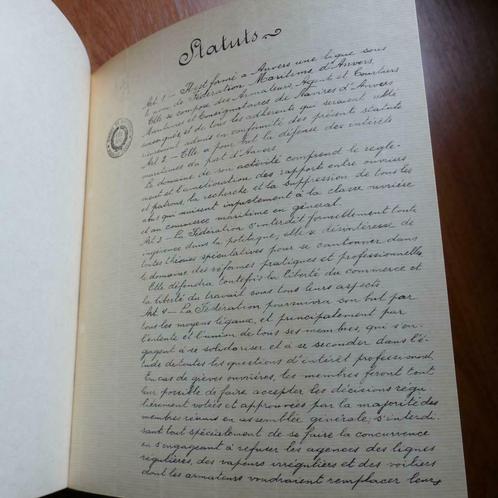 Statuts
Art 1 - Il est formé à Anvers une ligue sous
le nom de Fédération Maritime d'Anvers.
Elle se compose des Armateurs, Agents et Courtiers
Maritimes et Consignataires de Navires d'Anvers
soussignés et de tous les adhérents qui seraient ultérieurement
admis en conformité des présents statuts
Art 2 - Elle a pour but la défense des intérêts
maritimes du port d'Anvers
Le domaine de son activité comprend le règle-
ment et l'amélioration des rapports entre ouvriers
et patrons, la recherche et la suppression de tous les
abus qui nuisent injustement à la classe ouvrière
et au commerce maritime en général.
Art 3 - La Fédération s'interdit formellement toute
ingérence dans la politique, elle se désintéresse de
toutes thèses spéculatives pour se cantonner dans
le domaine des réformes pratiques et professionnelles
Elle défendra toutefois la liberté du commerce et
la liberté du travail sous tous leurs aspects
Art 4 - La Fédération poursuivra son but par
tous les moyens légaux, et principalement par
l'entente et l'union de tous ses membres, qui s'en-
gagent à se solidariser et à se seconder dans l'é-
tude de toutes les questions d'intérêt professionnel
En cas de grèves ouvrières, les membres feront tout
leur possible de faire accepter les décisions régu-
lièrement votées et approuvées par la majorité des
membres réunis en assemblée générale, s'interdi-
sant tout spécialement de se faire la concurrence
en s'engageant à refuser les agences des lignes
régulières, des vapeurs irréguliers et des voiliers
dont les armateurs voudraient remplacer leurs